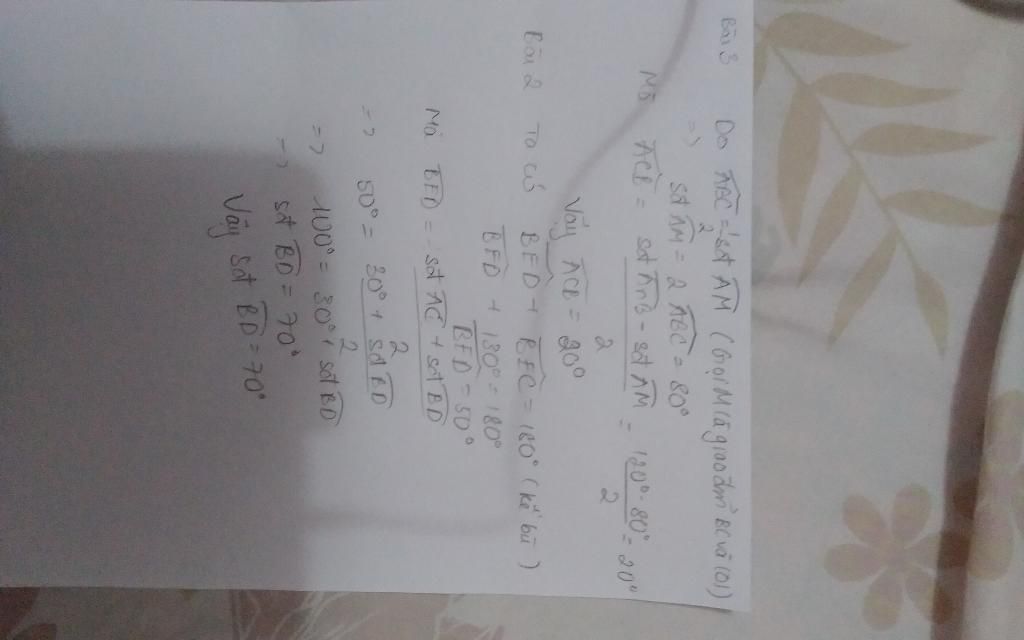 Bài 3 Do ABC = 1/2 sđ AM (Gọi M là giao điểm BC và (O))
=> sđ AM = 2 ABC = 80°
Mà ACB = sđ AnB - sđ AM / 2 = 120° - 80° / 2 = 20°
Vậy ACB = 20°
Bài 2 Ta có BED + BEC = 180° (kề bù)
BED + 130° = 180°
BED = 50°
Mà BED = sđ AC + sđ BD / 2
=> 50° = 30° + sđ BD / 2
=> 100° = 30° + sđ BD
=> sđ BD = 70°
Vậy sđ BD = 70°